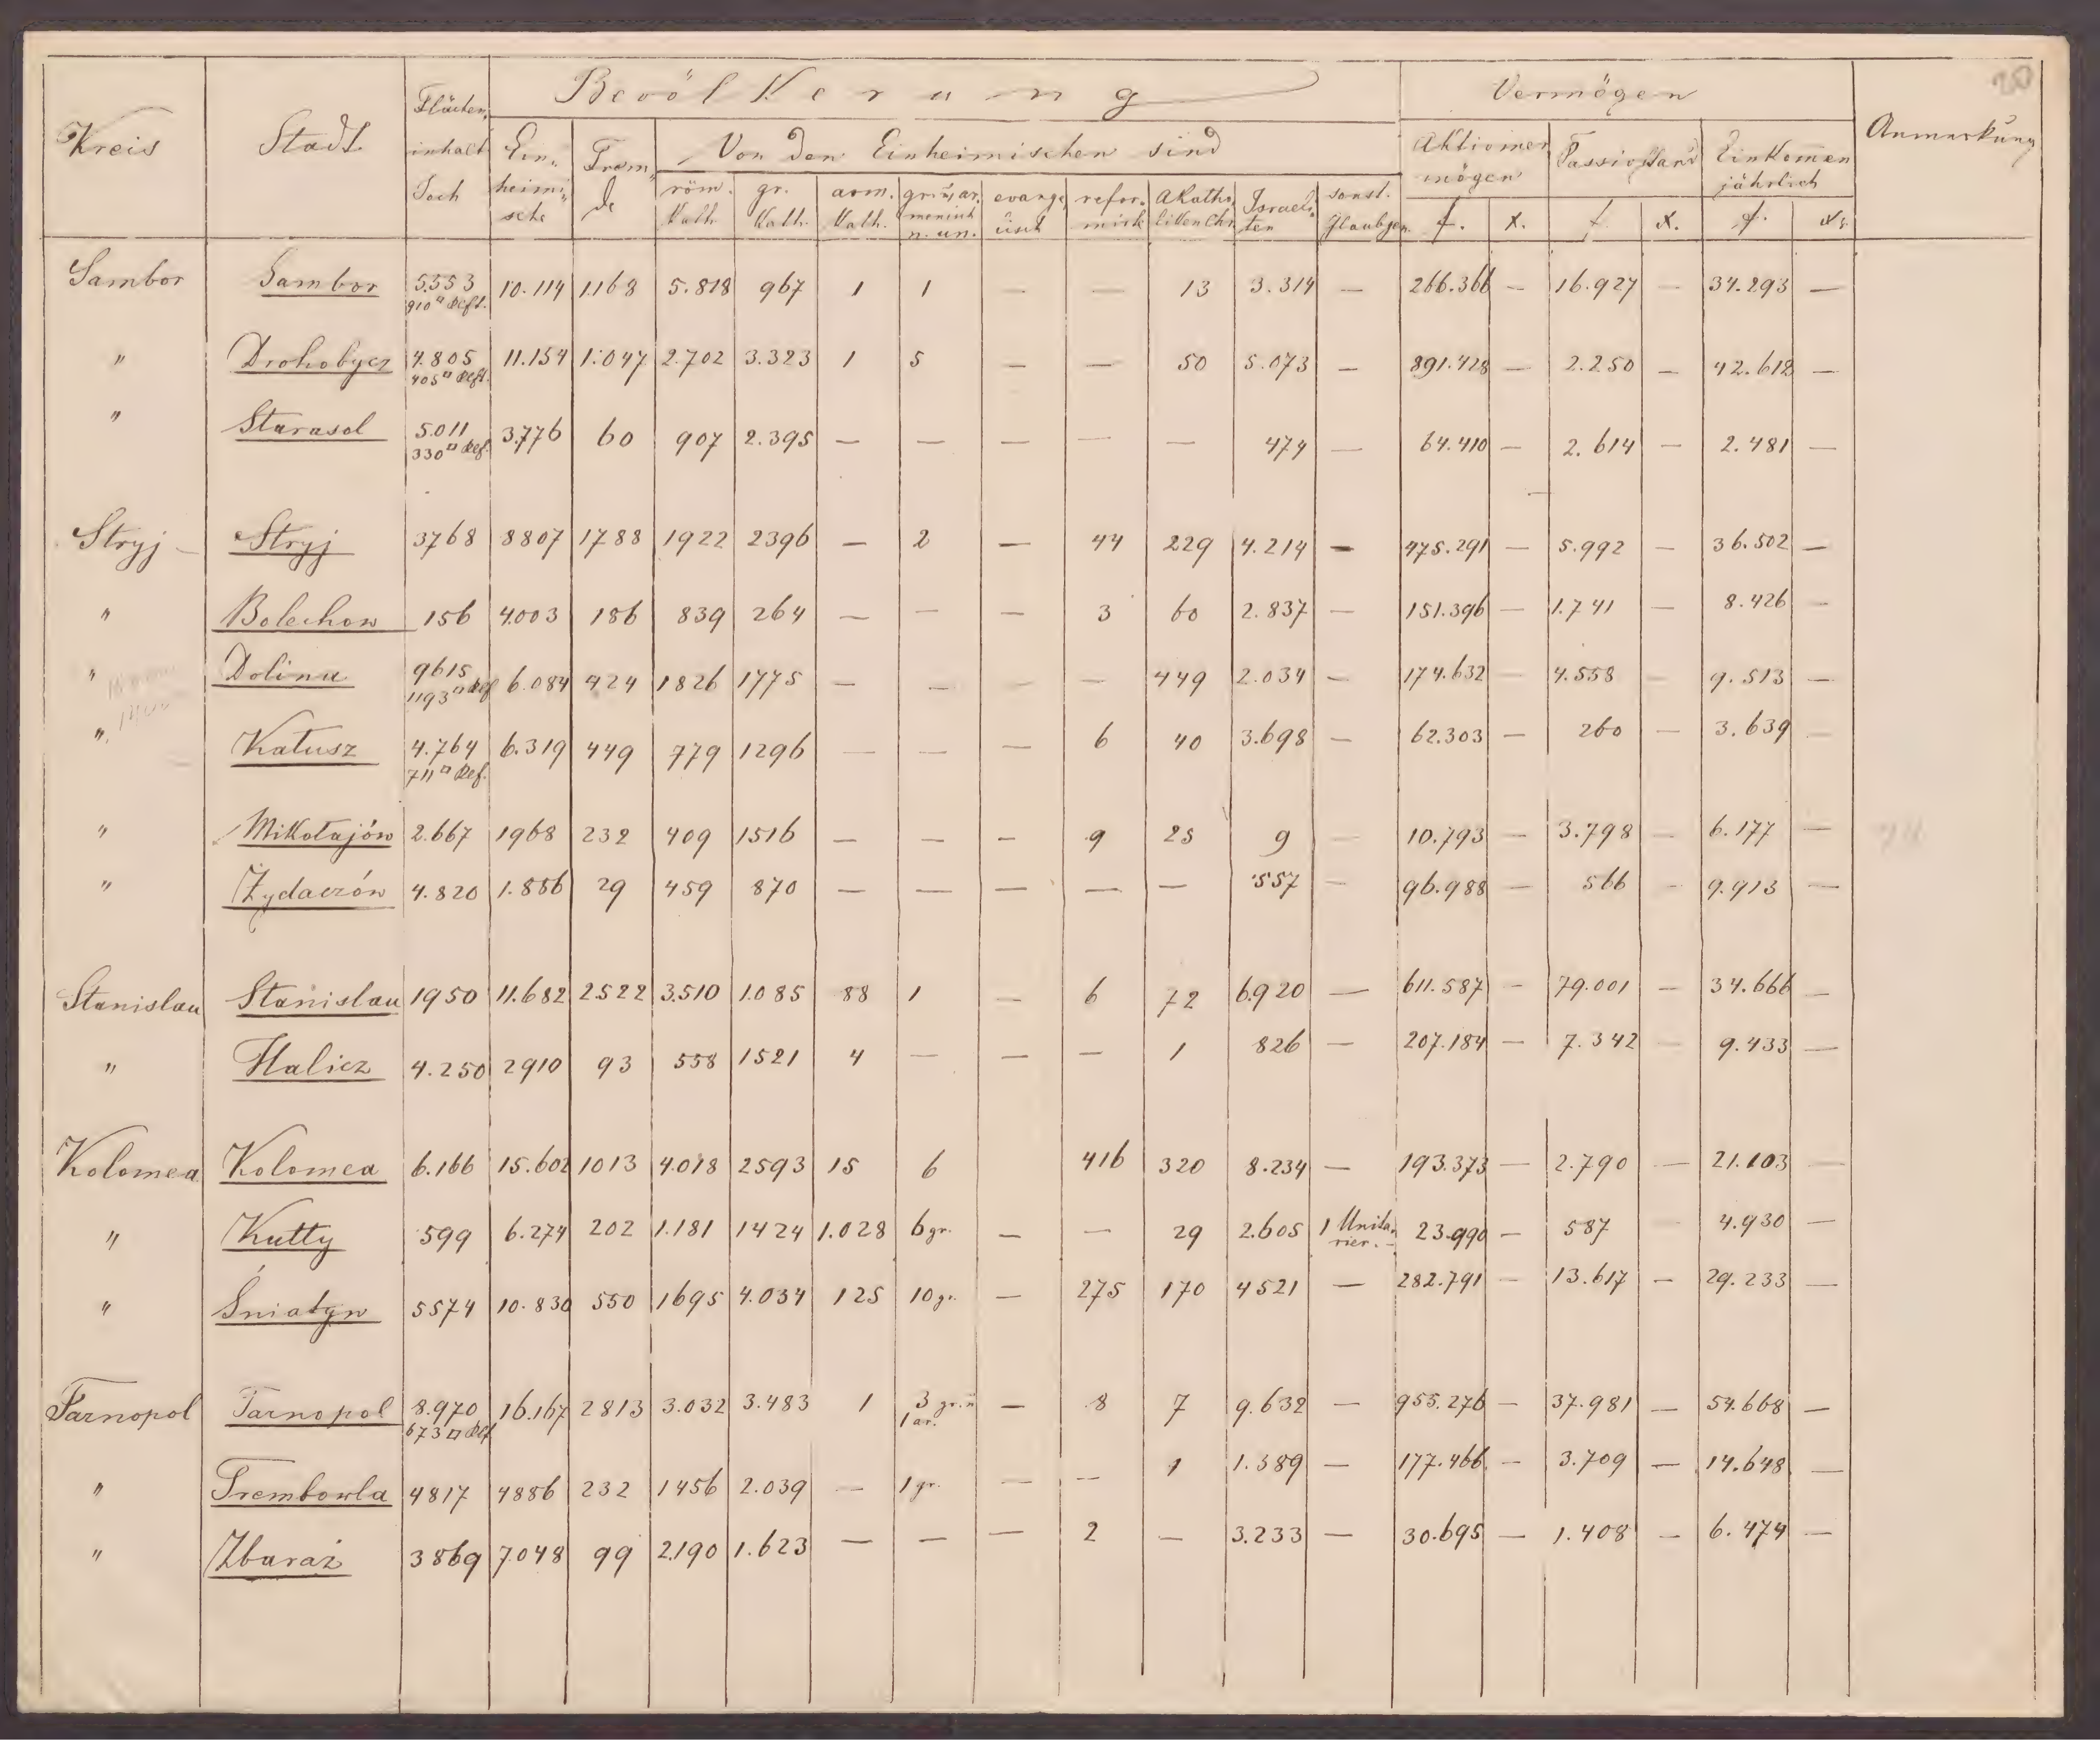 Bevölkerung Vermögen
Kreis Stadt Flächen- inhalt Joch Ein- heimi- sche Frem- de Von den Einheimischen sind Aktivver mögen Passivstand Einkommen jährlich Anmerkung
röm. Kath. gr. Kath. arm. Kath. gr. u. ar. menisch n. un. evange- lisch refor- mirt Akatho- liken Chr. Israeli- ten sonst. Glaubgen. f. x. f. x. f. x.
Sambor Sambor 5.553 10.114 1.168 5.818 967 1 1 — — 13 3.314 — 266.366 — 16.927 — 34.293 —
910□ Kl.
" Drohobycz 4.805 11.154 1.047 2.702 3.323 1 5 — — 50 5.073 — 891.428 — 2.250 — 42.618 —
405□ Kl.
" Starasol 5.011 3.776 60 907 2.395 — — — — — 474 — 64.410 — 2.614 — 2.481 —
330□ Kl.
Stryj — Stryj 3768 8807 1788 1922 2396 — 2 — 44 229 4.214 — 475.291 — 5.992 — 36.502 —
" Bolechow 156 4.003 186 839 264 — — — 3 60 2.837 — 151.396 — 1.741 — 8.426 —
" Dolina 9615 6.084 424 1826 1775 — — — — 449 2.034 — 174.632 — 4.558 — 9.513 —
1193□ Kl.
" Kałusz 4.764 6.319 449 779 1296 — — — 6 40 3.698 — 62.303 — 260 — 3.639 —
711□ Kl.
" Mikołajów 2.667 1968 232 409 1516 — — — 9 25 9 — 10.793 — 3.798 — 6.177 —
" Żydaczów 4.820 1.886 29 459 870 — — — — — 557 — 96.988 — 566 — 9.913 —
Stanislau Stanislau 1950 11.682 2522 3.510 1.085 88 1 — 6 72 6.920 — 611.587 — 79.001 — 34.666 —
" Halicz 4.250 2910 93 558 1521 4 — — — 1 826 — 207.184 — 7.342 — 9.433 —
Kolomea Kolomea 6.166 15.602 1013 4.018 2593 15 6 416 320 8.234 — 193.373 — 2.790 — 21.103 —
" Kutty 599 6.274 202 1.181 1424 1.028 6 gr. — — 29 2.605 1 Unita- rier. — 23.990 — 587 4.930 —
" Śniatyn 5574 10.830 550 1695 4.034 125 10 gr. — 275 170 4521 — 282.791 — 13.617 — 29.233 —
Tarnopol Tarnopol 8.970 16.167 2813 3.032 3.483 1 3 gr. n 1 ar. — 8 7 9.632 — 955.276 — 37.981 — 54.668 —
673□ Kl.
" Trembowla 4817 4886 232 1456 2.039 — 1 gr. — — 1 1.389 — 177.466 — 3.709 — 14.648 —
" Zbaraż 3869 7.048 99 2.190 1.623 — — — 2 — 3.233 — 30.695 — 1.408 — 6.474 —